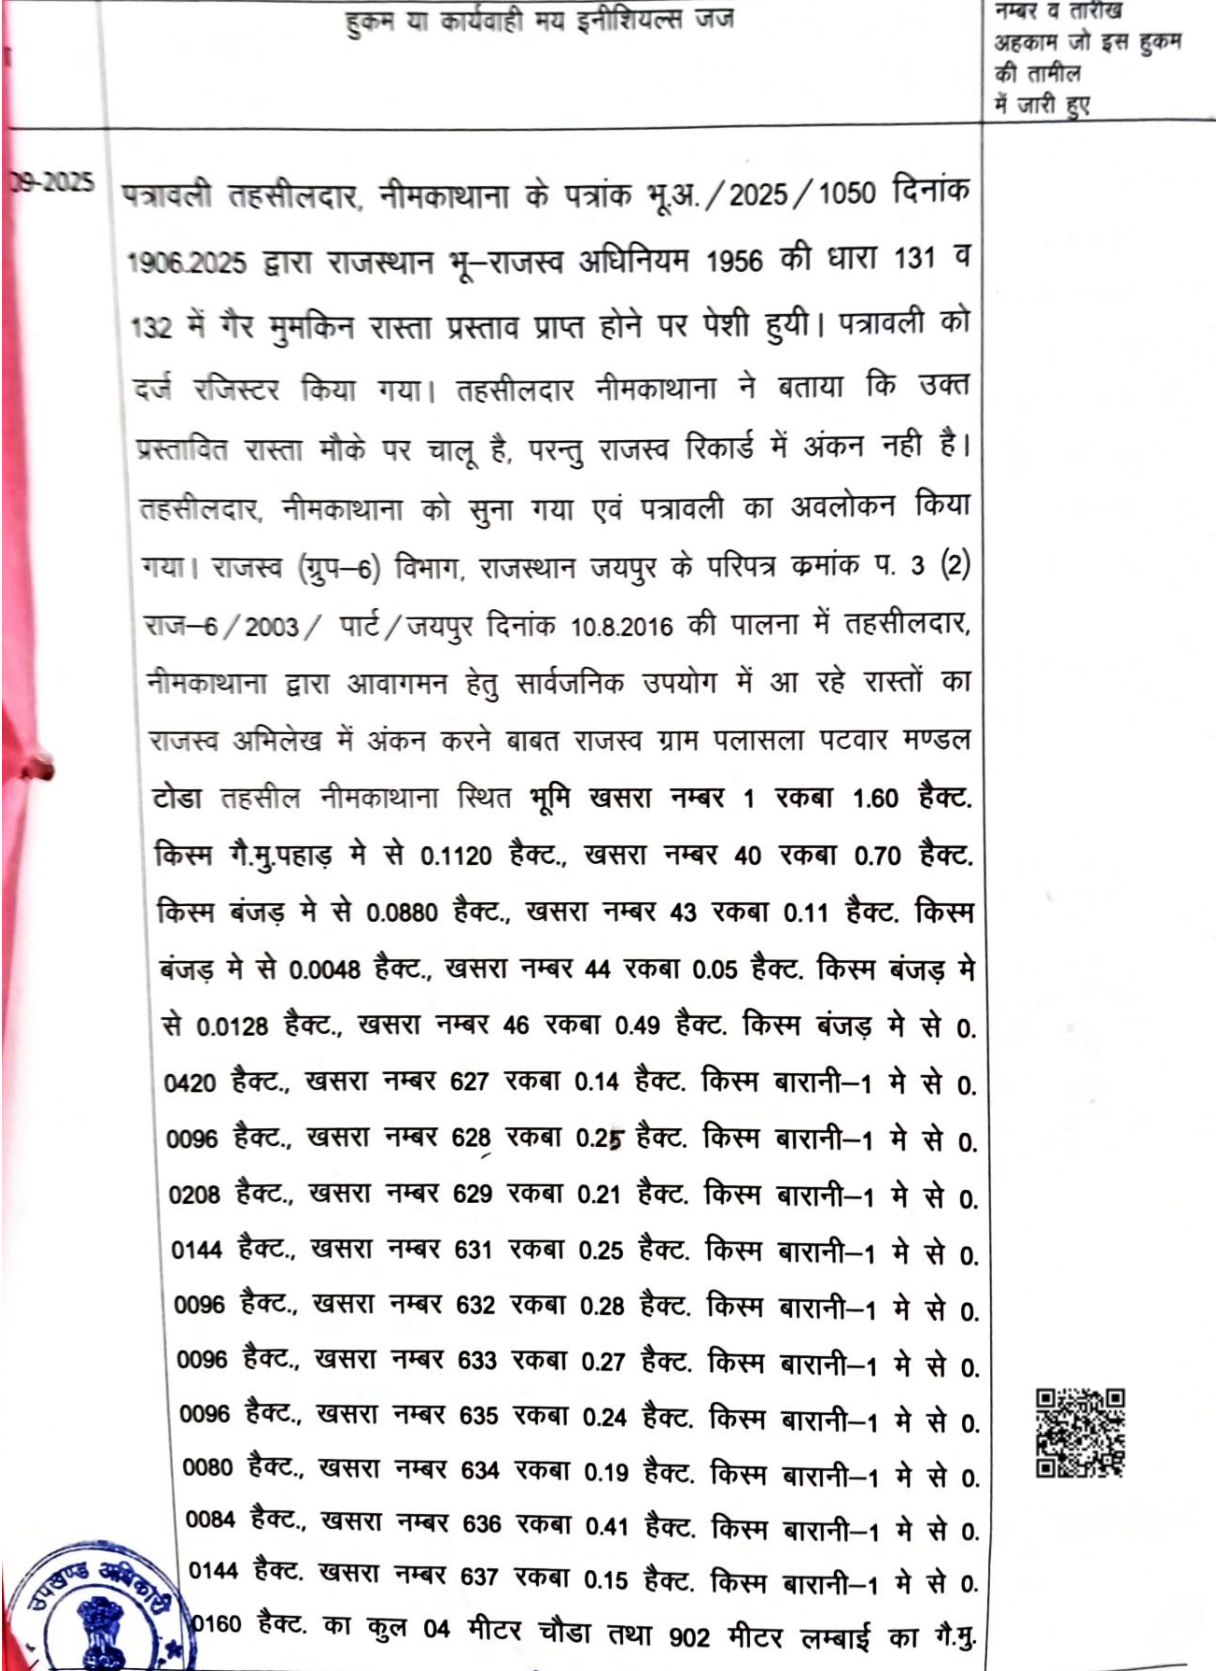 हुकम या कार्यवाही मय इनीशियल्स जज
नम्बर व तारीख
अहकाम जो इस हुकम
की तामील
में जारी हुए
09-2025
पत्रावली तहसीलदार, नीमकाथाना के पत्रांक भू.अ./2025/1050 दिनांक
1906.2025 द्वारा राजस्थान भू–राजस्व अधिनियम 1956 की धारा 131 व
132 में गैर मुमकिन रास्ता प्रस्ताव प्राप्त होने पर पेशी हुयी। पत्रावली को
दर्ज रजिस्टर किया गया। तहसीलदार नीमकाथाना ने बताया कि उक्त
प्रस्तावित रास्ता मौके पर चालू है, परन्तु राजस्व रिकार्ड में अंकन नही है।
तहसीलदार, नीमकाथाना को सुना गया एवं पत्रावली का अवलोकन किया
गया। राजस्व (ग्रुप–6) विभाग, राजस्थान जयपुर के परिपत्र क्रमांक प. 3 (2)
राज–6/2003/ पार्ट/जयपुर दिनांक 10.8.2016 की पालना में तहसीलदार,
नीमकाथाना द्वारा आवागमन हेतु सार्वजनिक उपयोग में आ रहे रास्तों का
राजस्व अभिलेख में अंकन करने बाबत राजस्व ग्राम पलासला पटवार मण्डल
टोडा तहसील नीमकाथाना स्थित भूमि खसरा नम्बर 1 रकबा 1.60 हैक्ट.
किस्म गै.मु.पहाड़ मे से 0.1120 हैक्ट., खसरा नम्बर 40 रकबा 0.70 हैक्ट.
किस्म बंजड़ मे से 0.0880 हैक्ट., खसरा नम्बर 43 रकबा 0.11 हैक्ट. किस्म
बंजड़ मे से 0.0048 हैक्ट., खसरा नम्बर 44 रकबा 0.05 हैक्ट. किस्म बंजड़ मे
से 0.0128 हैक्ट., खसरा नम्बर 46 रकबा 0.49 हैक्ट. किस्म बंजड़ मे से 0.
0420 हैक्ट., खसरा नम्बर 627 रकबा 0.14 हैक्ट. किस्म बारानी–1 मे से 0.
0096 हैक्ट., खसरा नम्बर 628 रकबा 0.25 हैक्ट. किस्म बारानी–1 मे से 0.
0208 हैक्ट., खसरा नम्बर 629 रकबा 0.21 हैक्ट. किस्म बारानी–1 मे से 0.
0144 हैक्ट., खसरा नम्बर 631 रकबा 0.25 हैक्ट. किस्म बारानी–1 मे से 0.
0096 हैक्ट., खसरा नम्बर 632 रकबा 0.28 हैक्ट. किस्म बारानी–1 मे से 0.
0096 हैक्ट., खसरा नम्बर 633 रकबा 0.27 हैक्ट. किस्म बारानी–1 मे से 0.
0096 हैक्ट., खसरा नम्बर 635 रकबा 0.24 हैक्ट. किस्म बारानी–1 मे से 0.
0080 हैक्ट., खसरा नम्बर 634 रकबा 0.19 हैक्ट. किस्म बारानी–1 मे से 0.
0084 हैक्ट., खसरा नम्बर 636 रकबा 0.41 हैक्ट. किस्म बारानी–1 मे से 0.
0144 हैक्ट. खसरा नम्बर 637 रकबा 0.15 हैक्ट. किस्म बारानी–1 मे से 0.
0160 हैक्ट. का कुल 04 मीटर चौडा तथा 902 मीटर लम्बाई का गै.मु.
उपखण्ड अधिकारी